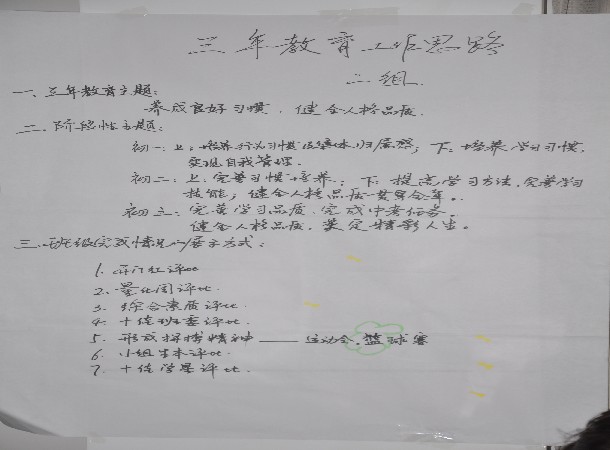 三年教育工作思路
二组
一、三年教育主题:
养成良好习惯,健全人格品质.
二、阶段性主题:
初一:上:培养行为习惯 集体归属感;下:培养学习习惯,
实现自我管理.
初二:上:完善习惯培养;下:提高学习方法,完善学习
技能;健全人格品质
初三:完善学习品质,完成中考任务,
健全人格品质,奠定精彩人生。
三、班级完成情况的展示方式:
1. 开门红评比
2. 量化周评比.
3. 综合素质评比.
4. 十佳班委评比.
5. 形成拼搏精神——运动会,篮球赛
6. 小组 评比.
7. 十佳学星评比.